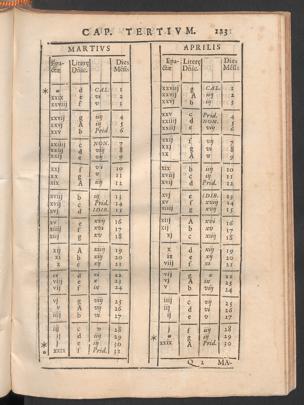 CAP. TERTIVM. 123
MARTIVS
Epactæ Literæ Dñic. Dies Mēsis
* d CAL. 1
xxix e vj 2
xxviij f v 3
xxvij g iiij 4
xxvj A iij 5
xxv b Prid. 6
xxiiij c NON. 7
xxiij d viij 8
xxij e vij 9
xxj f vj 10
xx g v 11
xix A iiij 12
xviij b iij 13
xvij c Prid. 14
xvj d IDIB. 15
xv e xvij 16
xiiij f xvj 17
xiij g xv 18
xij A xiiij 19
xj b xiij 20
x c xij 21
ix d xj 22
viij e x 23
vij f ix 24
vj g viij 25
v A vij 26
iiij b vj 27
iij c v 28
ij d iiij 29
j e iij 30
* f Prid. 31
APRILIS
Epactæ Literæ Dñic. Dies Mēsis
xxviij g CAL. 1
A iiij 2
b iij 3
xxv c Prid. 4
xxiiij d NON. 5
xxiij e viij 6
xxij f vij 7
xxj g vj 8
xx A v 9
xix b iiij 10
xviij c iij 11
xvij d Prid. 12
xvj e IDIB. 13
xv f xviij 14
xiiij g xvij 15
xiij A xvj 16
xij b xv 17
xj c xiiij 18
x d xiij 19
ix e xij 20
viij f xj 21
vij g x 22
vj A ix 23
v b viij 24
iiij c vij 25
iij d vj 26
ij e v 27
j f iiij 28
* g iij 29
xxix A Prid. 30
Q 2 MA-